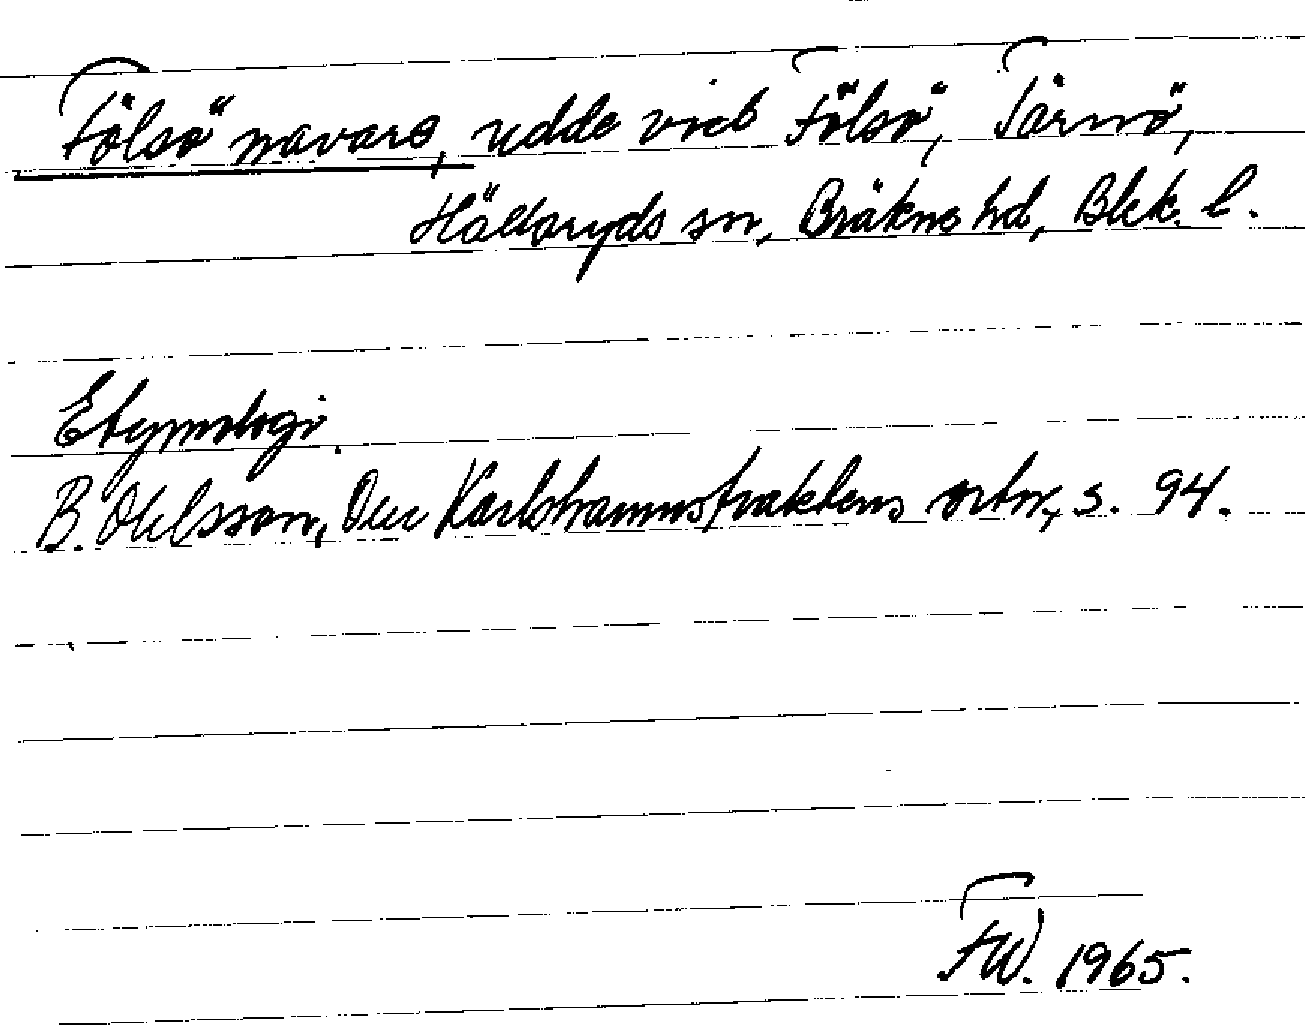 Fölsö navare, udde vid Fölsö, Tärnö,
Hällaryds sn, Bräkne hd, Blek. l.
Etymologi.
B. Ohlsson, Om Karlshamnstraktens ortn., s. 94.
FW. 1965.